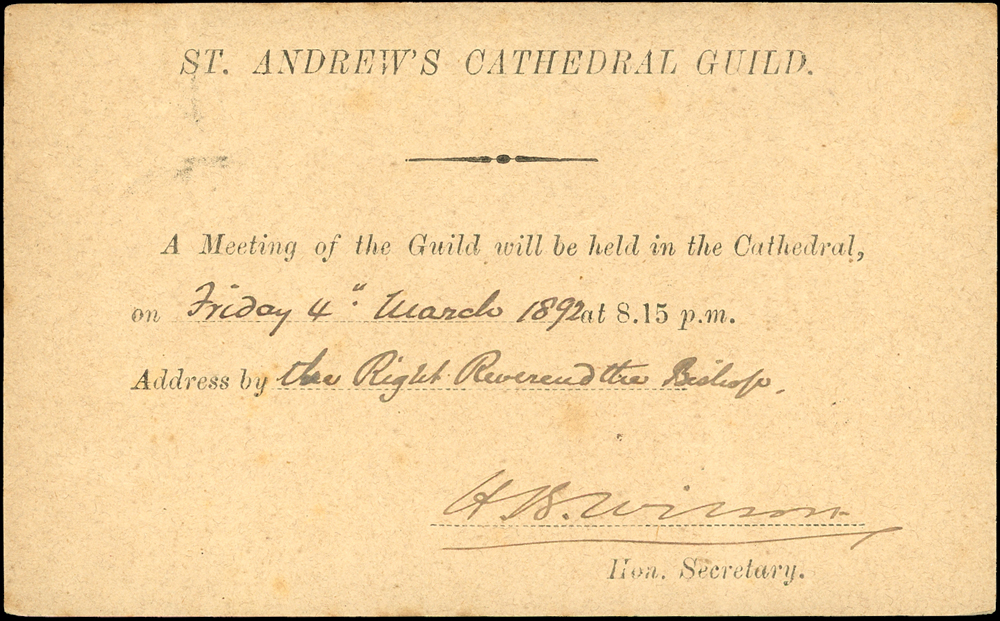 ST. ANDREW'S CATHEDRAL GUILD.
A Meeting of the Guild will be held in the Cathedral,
on Friday 4" March 1892 at 8.15 p.m.
Address by the Right Reverend the Bishop.
H. B. Wilson
Hon. Secretary.